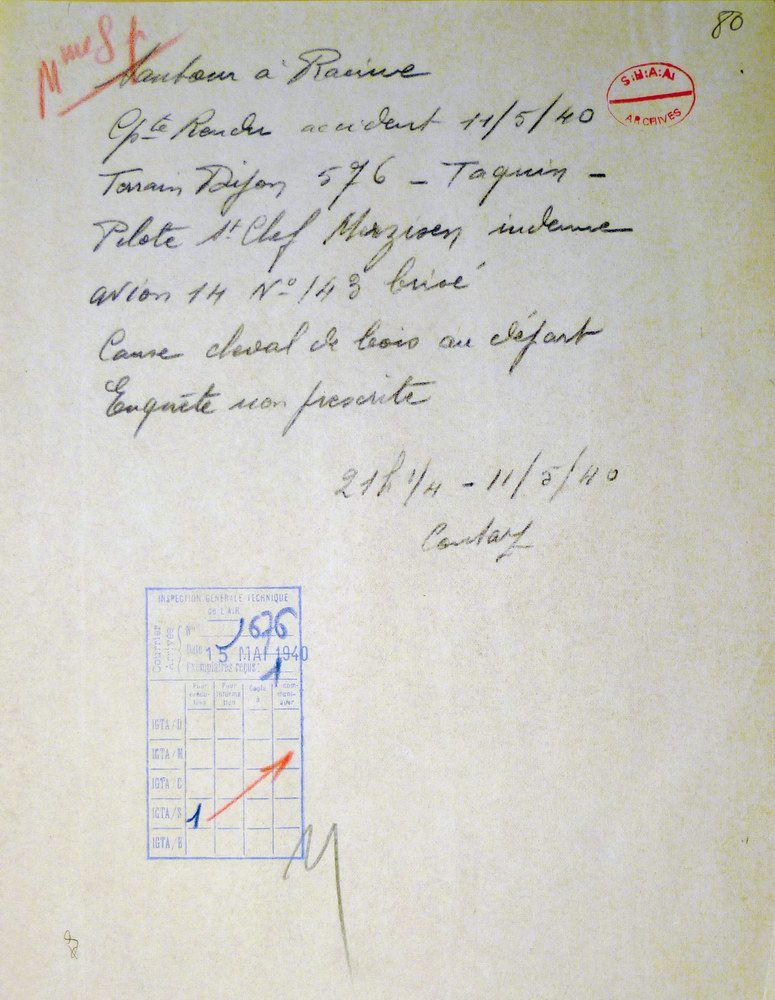 80
S.H.A.A.
ARCHIVES
à Racine
Cpte Rendu accident 11/5/40
Terrain Dijon 576 - Taquin -
Pilote St Chef indemne
avion 14 N° 143 brisé
Cause cheval de bois au départ
Enquête non prescrite
21h 1/4 - 11/5/40
INSPECTION GENERALE TECHNIQUE
DE L'AIR
Courrier Arrivée
N° 1676
Date 15 MAI 1940
Exemplaires reçus: 1
Pour exécution
Pour information
Copie à
communiquer
IGTA/D
IGTA/M
IGTA/C
IGTA/S 1
IGTA/E